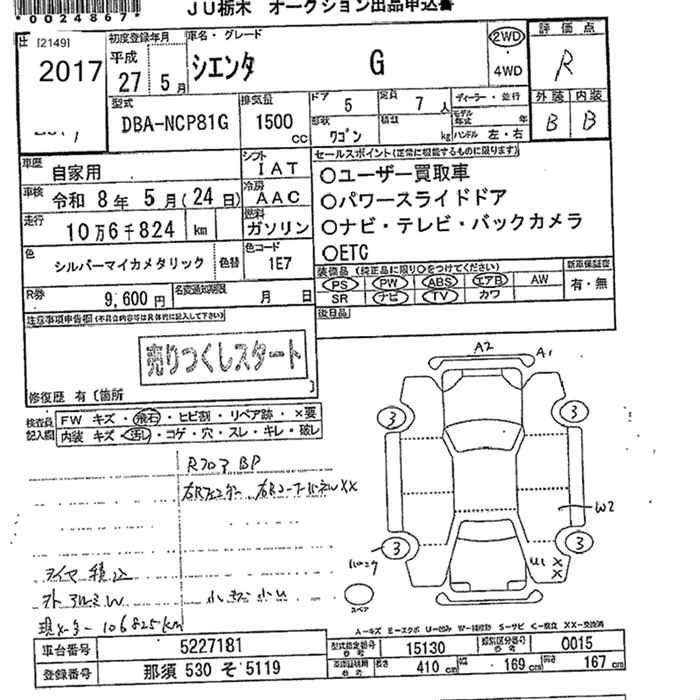 *0024867*
JU栃木 オークション出品申込書
[2149]
2017
初度登録年月
平成
27 5月
車名・グレード
シエンタ G
2WD
4WD
評価点
R
型式
DBA-NCP81G
排気量
1500 cc
ドア 5
定員 7人
形状 ワゴン
積載 kg
ディーラー・並行
モデル年式 年
ハンドル 左・右
外装 内装
B B
車歴 自家用
シフト IAT
車検 令和8年5月(24日)
冷房 AAC
走行 10万6千824 km
燃料 ガソリン
色 シルバーマイカメタリック 色替
色コード 1E7
R券 9,600円
名変通知期限 月 日
セールスポイント(正常に機能するものに限ります)
○ユーザー買取車
○パワースライドドア
○ナビ・テレビ・バックカメラ
○ETC
装備品(純正品に限り○をつけてください)
PS PW ABS エアB AW
SR ナビ TV カワ
新車保証書
有・無
後日品
注意事項申告欄(不具合内容等は具体的に記入して下さい)
売りつくしスタート
修復歴 有〔箇所
検査員記入欄
FW キズ・飛石・ヒビ割・リペア跡・×要
内装 キズ・汚し・コゲ・穴・スレ・キレ・破レ
Rフロア BP
右Rフェンダー、右Rコーナーパネル XX
タイヤ積込
外 アルミW
小キズ 小U
現メーター 106825km
A2
A1
3
3
W2
3
3
U1 X
X
スペア
A-キズ E-エクボ U-凹み W-補修跡 S-サビ C-腐食 XX-交換済
車台番号 5227181
登録番号 那須 530 そ 5119
型式指定番号 参考 15130
類別区分番号 参考 0015
車両証明用 参考
長さ 410 cm
幅 169 cm
高さ 167 cm